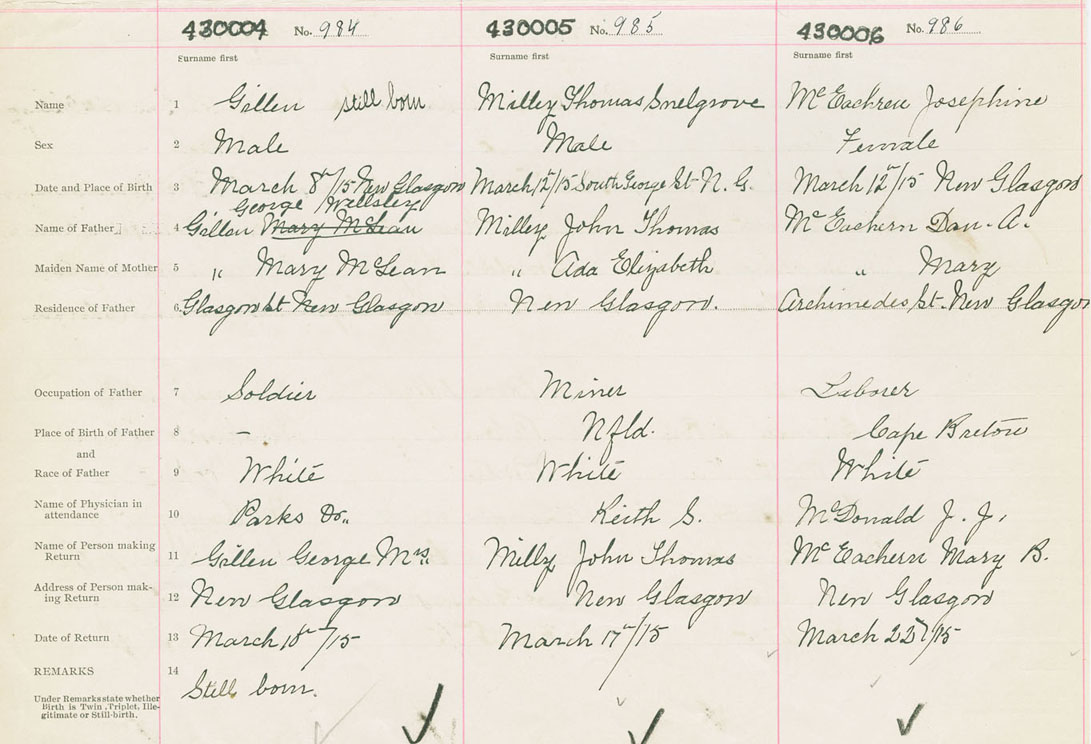 430004 No. 984 430005 No. 985 430006 No. 986
Surname first Surname first Surname first
Name 1 Gillen still born Milley Thomas Snelgrove McEachren Josephine
Sex 2 Male Male Female
Date and Place of Birth 3 March 8th/15 New Glasgow March 12/15 South George St N. G. March 12th/15 New Glasgow
George Wellsley
Name of Father 4 Gillen Mary McLean Milley John Thomas McEachern Dan. A.
Maiden Name of Mother 5 " Mary McLean " Ada Elizabeth " Mary
Residence of Father 6. Glasgow St New Glasgow New Glasgow. Archimedes St. New Glasgow
Occupation of Father 7 Soldier Miner Laborer
Place of Birth of Father 8 – Nfld. Cape Breton
and
Race of Father 9 White White White
Name of Physician in
attendance 10 Parks Dr. Keith S. McDonald J. J.
Name of Person making
Return 11 Gillen George Mrs. Milly John Thomas McEachern Mary B.
Address of Person mak-
ing Return 12 New Glasgow New Glasgow New Glasgow
Date of Return 13 March 18th/15 March 17th/15 March 22/15
REMARKS 14
Still born.
Under Remarks state whether
Birth is Twin, Triplet, Ille-
gitimate or Still-birth.